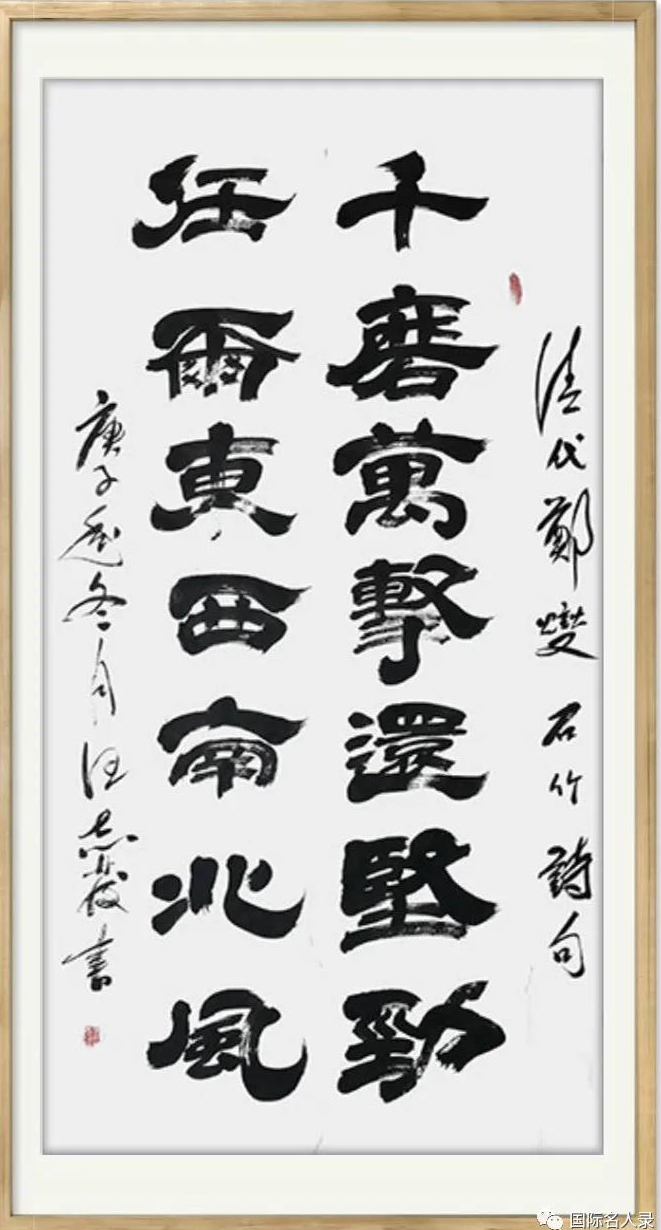 清代鄭燮石竹詩句
千磨萬擊還堅勁
任爾東西南北風
庚子冬月汪志書
国际名人录